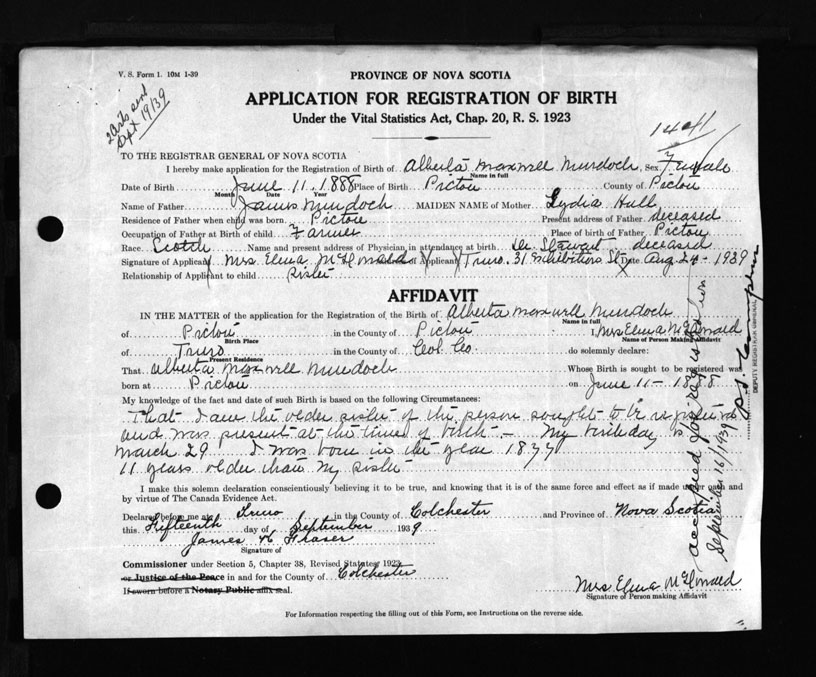 V. S. Form 1. 10M 1-39
2 Certs send
Sept 19/39
PROVINCE OF NOVA SCOTIA
APPLICATION FOR REGISTRATION OF BIRTH
Under the Vital Statistics Act, Chap. 20, R. S. 1923
TO THE REGISTRAR GENERAL OF NOVA SCOTIA
I hereby make application for the Registration of Birth of Alberta Maxwell Murdoch, Sex Female
Name in full
Date of Birth June 11, 1888 Place of Birth Pictou County of Pictou
Month Date Year
Name of Father James Murdoch MAIDEN NAME of Mother Lydia Hull
Residence of Father when child was born Pictou Present address of Father deceased
Occupation of Father at Birth of child Farmer Place of birth of Father Pictou
Race Scotch Name and present address of Physician in attendance at birth Dr Stewart deceased
Signature of Applicant Mrs Elma McDonald of Applicant Truro. 31 Exhibition St Date Aug 24 - 1939
Relationship of Applicant to child sister
AFFIDAVIT
IN THE MATTER of the application for the Registration of the Birth of Alberta Maxwell Murdoch
Name in full
of Pictou in the County of Pictou I, Mrs Elma McDonald
Birth Place Name of Person Making Affidavit
of Truro in the County of Col. Co. do solemnly declare:
Present Residence
That Alberta Maxwell Murdoch Whose Birth is sought to be registered was
born at Pictou on June 11 - 1888
My knowledge of the fact and date of such Birth is based on the following Circumstances:
That I am the older sister of the person sought to be registered
and was present at the time of birth - My birthday is
March 29 I was born in the year 1877
11 years older than my sister
I make this solemn declaration conscientiously believing it to be true, and knowing that it is of the same force and effect as if made under oath and
by virtue of The Canada Evidence Act.
Declared before me at Truro in the County of Colchester and Province of Nova Scotia
this Fifteenth day of September 1939
James H Fraser
Signature of
Commissioner under Section 5, Chapter 38, Revised Statutes 1923
or Justice of the Peace in and for the County of Colchester
If sworn before a Notary Public affix seal.
Mrs Elma McDonald
Signature of Person making Affidavit
For Information respecting the filling out of this Form, see Instructions on the reverse side.
accepted for registration
September 16/1939
DEPUTY REGISTRAR GENERAL